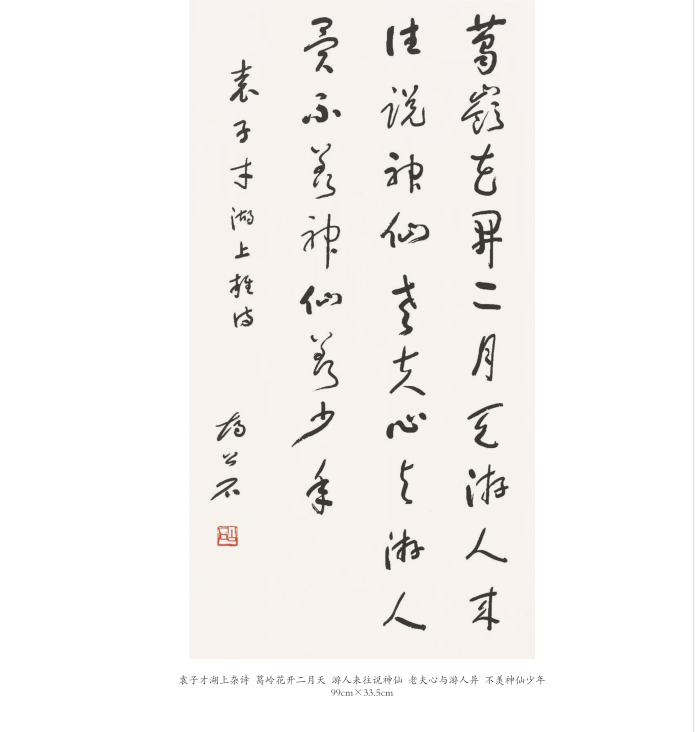 葛嶺花開二月天游人来
往说神仙老夫心与游人
異不羡神仙羡少年
袁子才湖上雜诗
袁子才湖上杂诗 葛岭花开二月天 游人来往说神仙 老夫心与游人异 不羡神仙少年
99cm×33.5cm